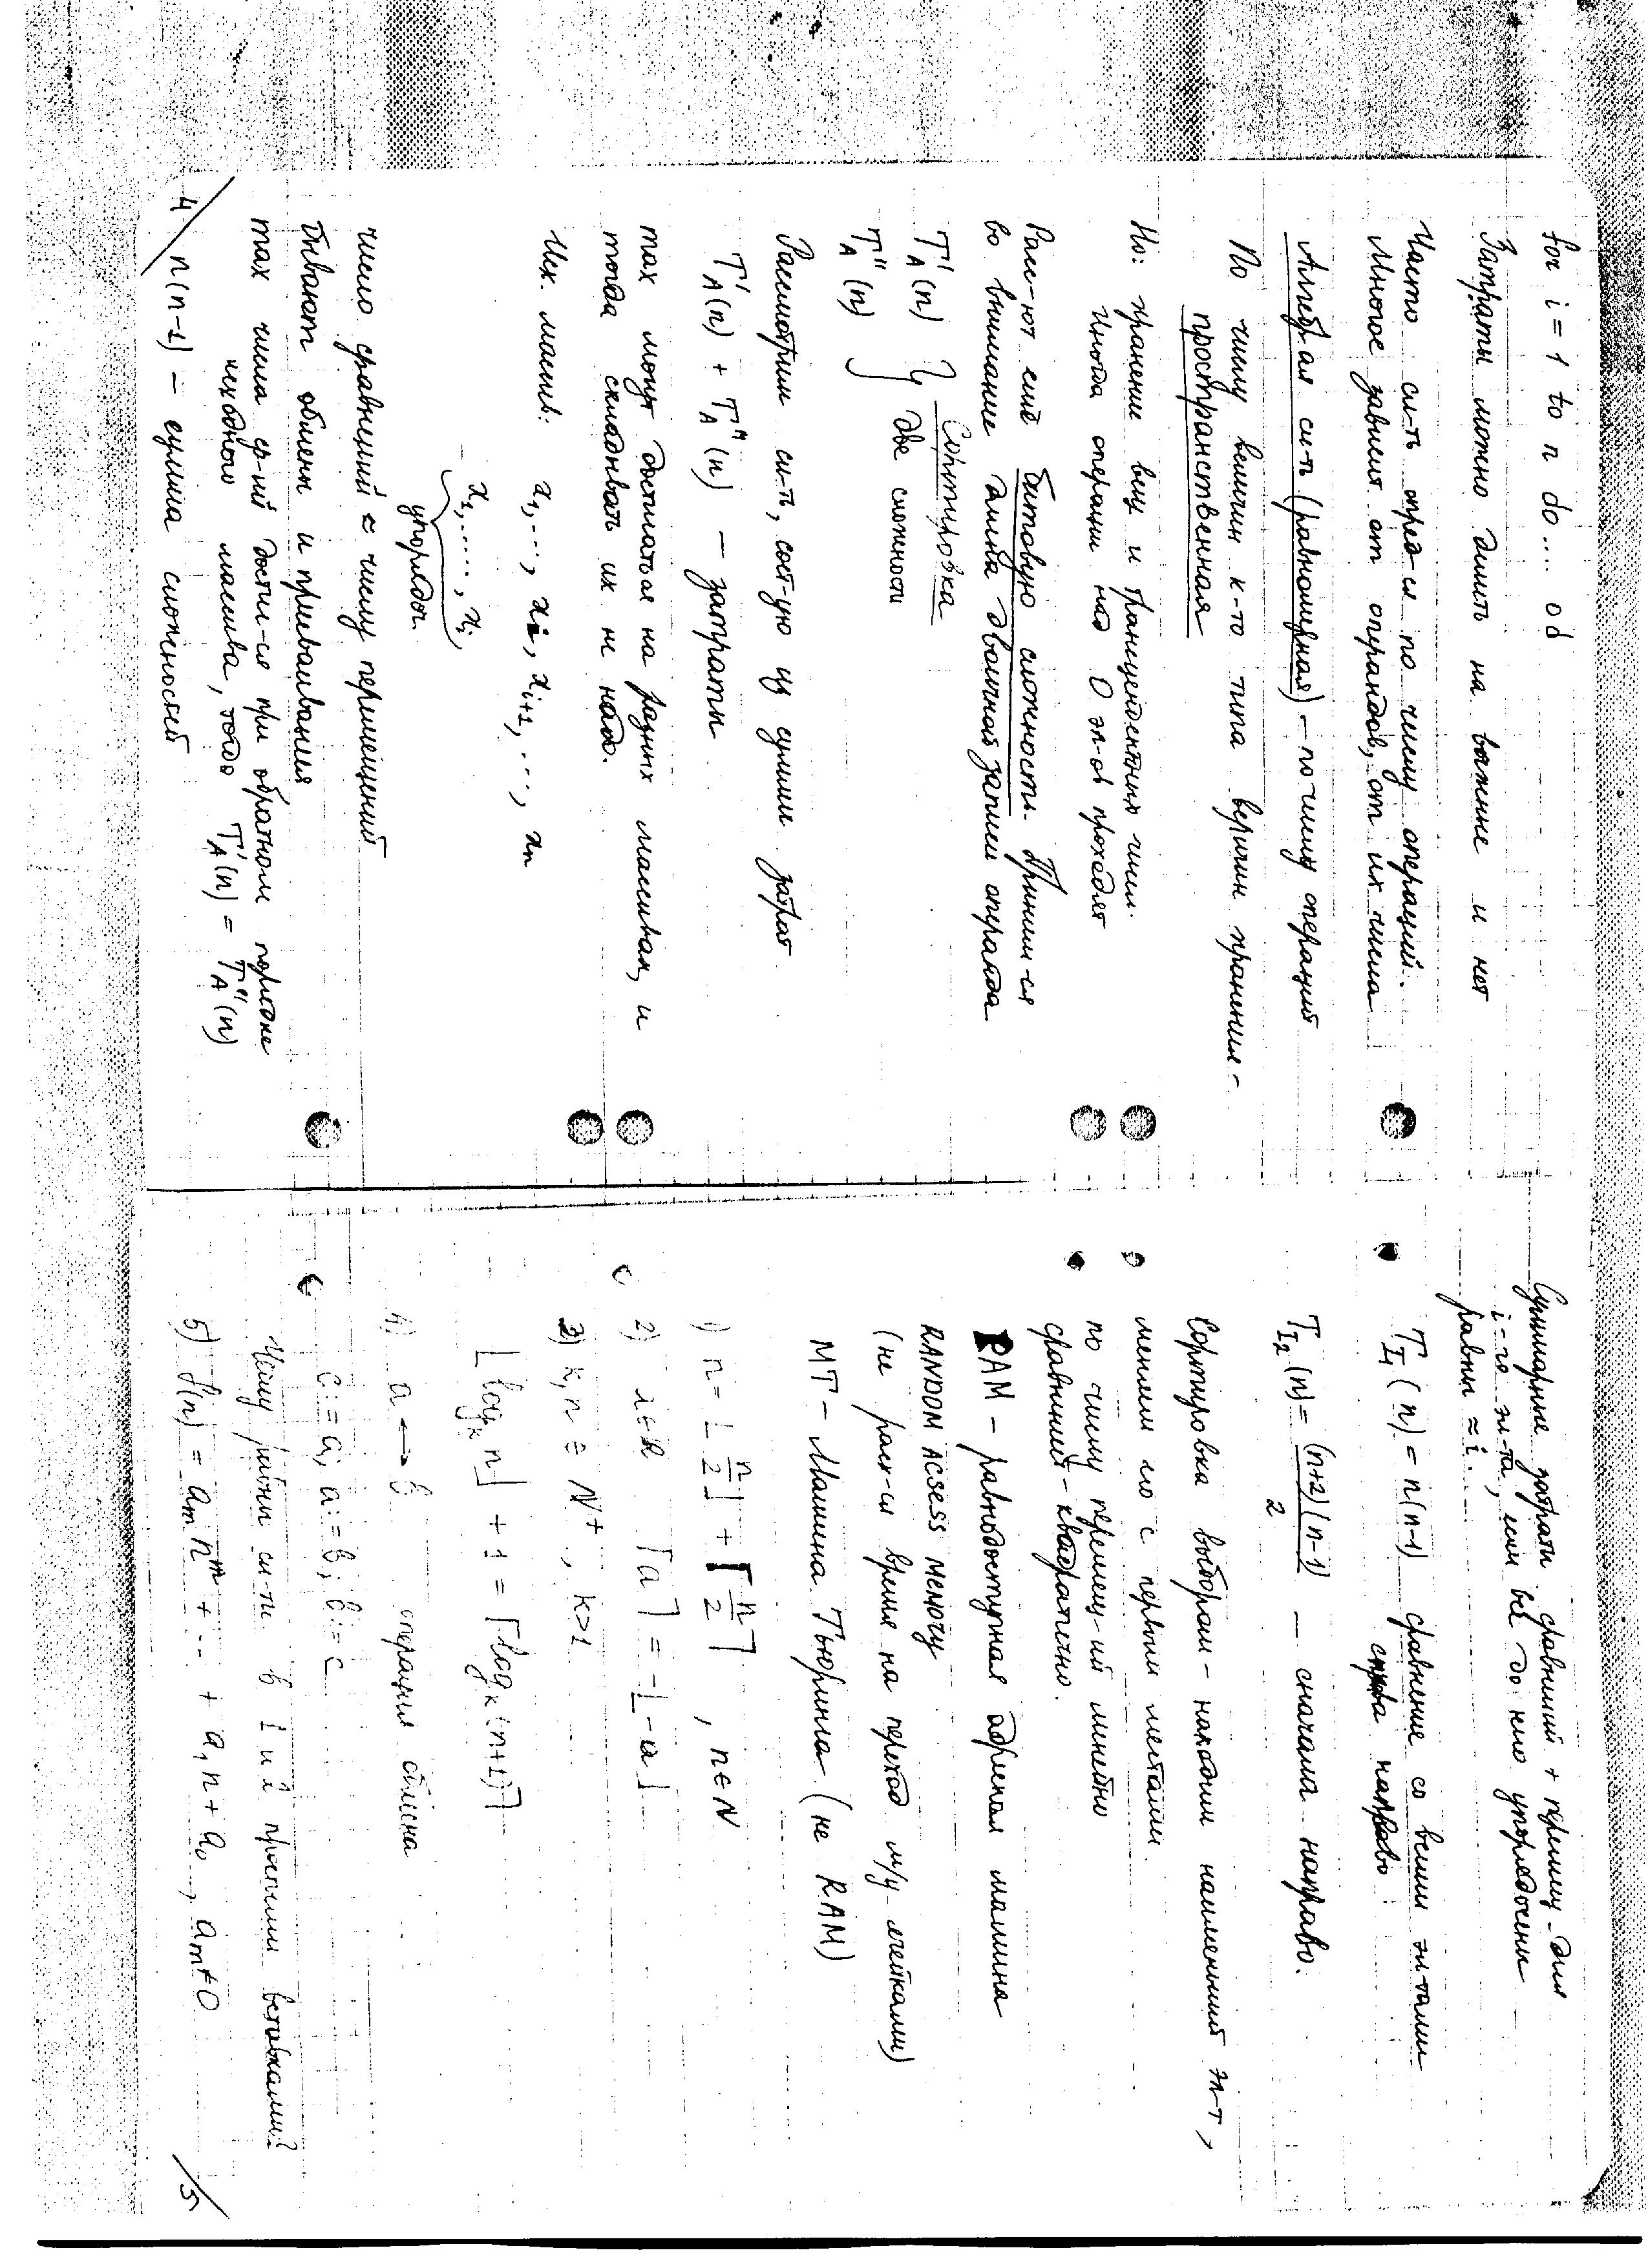 for i = 1 to n do... od
Затраты можно делить на важные и нет
Часто сл-ть опред-ся по числу операций.
Многое зависит от операндов, от их числа
Алгебр-ая сл-ть (равномерная) – по числу операций
По числу величин к-то типа величин хранения –
пространственная
Но: хранение вещ и трансцендентных чисел.
Иногда операции над 0 эл-ов проходят
Расс-ют ещё битовую сложность. Приним-ся
во внимание длина двоичной записи операнда
Сортировка
T'A(n) } две сложности
T''A(n)
Рассмотрим сл-ть, сост-ую из суммы затрат
T'A(n) + T''A(n) – затраты
max могут достигаться на разных массивах, и
тогда складывать их не надо.
Исх. массив: x1, ..., xi, xi+1, ..., xn
x1, ...., xi,
упорядоч.
число сравнений ≈ числу перемещений
Бывают обмены и присваивания
max числа ср-ний дости-ся при обратном порядке
исходного массива, тогда T'A(n) = T''A(n)
n(n-1) – сумма сложностей
4
Суммарные затраты сравнений + перемещ. для
i-го эл-та, если все до него упорядочены
равны ≈ i.
TI1(n) = n(n-1) сравнение со всеми эл-тами
справа направо
TI2(n) = (n+2)(n-1)/2 – сначала направо.
Сортировка выбором – находим наименьший эл-т,
меняем его с первым местами.
по числу перемещ-ий линейно
сравнений – квадратично.
РАМ – равнодоступная адресная машина
RANDOM ACSESS MEMORY
(не расх-ся время на переход м/у ячейками)
МТ – Машина Тьюринга (не RAM)
1) n = ⌊n/2⌋ + ⌈n/2⌉, n∈N
2) a∈R ⌈a⌉ = -⌊-a⌋
3) k, n ∈ N+, k>1
⌊logk n⌋ + 1 = ⌈logk(n+1)⌉
4) a ↔ b операция обмена
c:=a; a:=b; b:=c
Чему равны сл-ти в 1 и 2 простыми вставками?
5) f(n) = am n^m + ... + a1 n + a0, am≠0
5